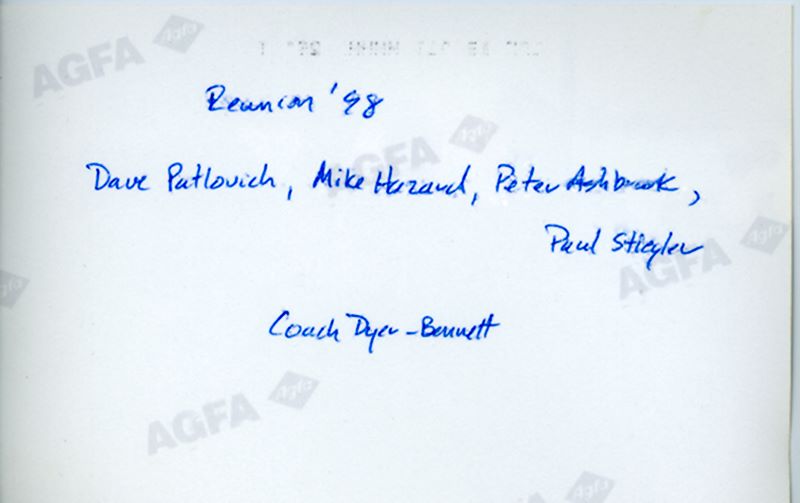 AGFA Agfa
Reunion '98
AGFA Agfa
Dave Patlovich, Mike Hazard, Peter Ashbrook,
Paul Stiegler
AGFA Agfa
Coach Dyer-Bennett
AGFA Agfa
Agfa